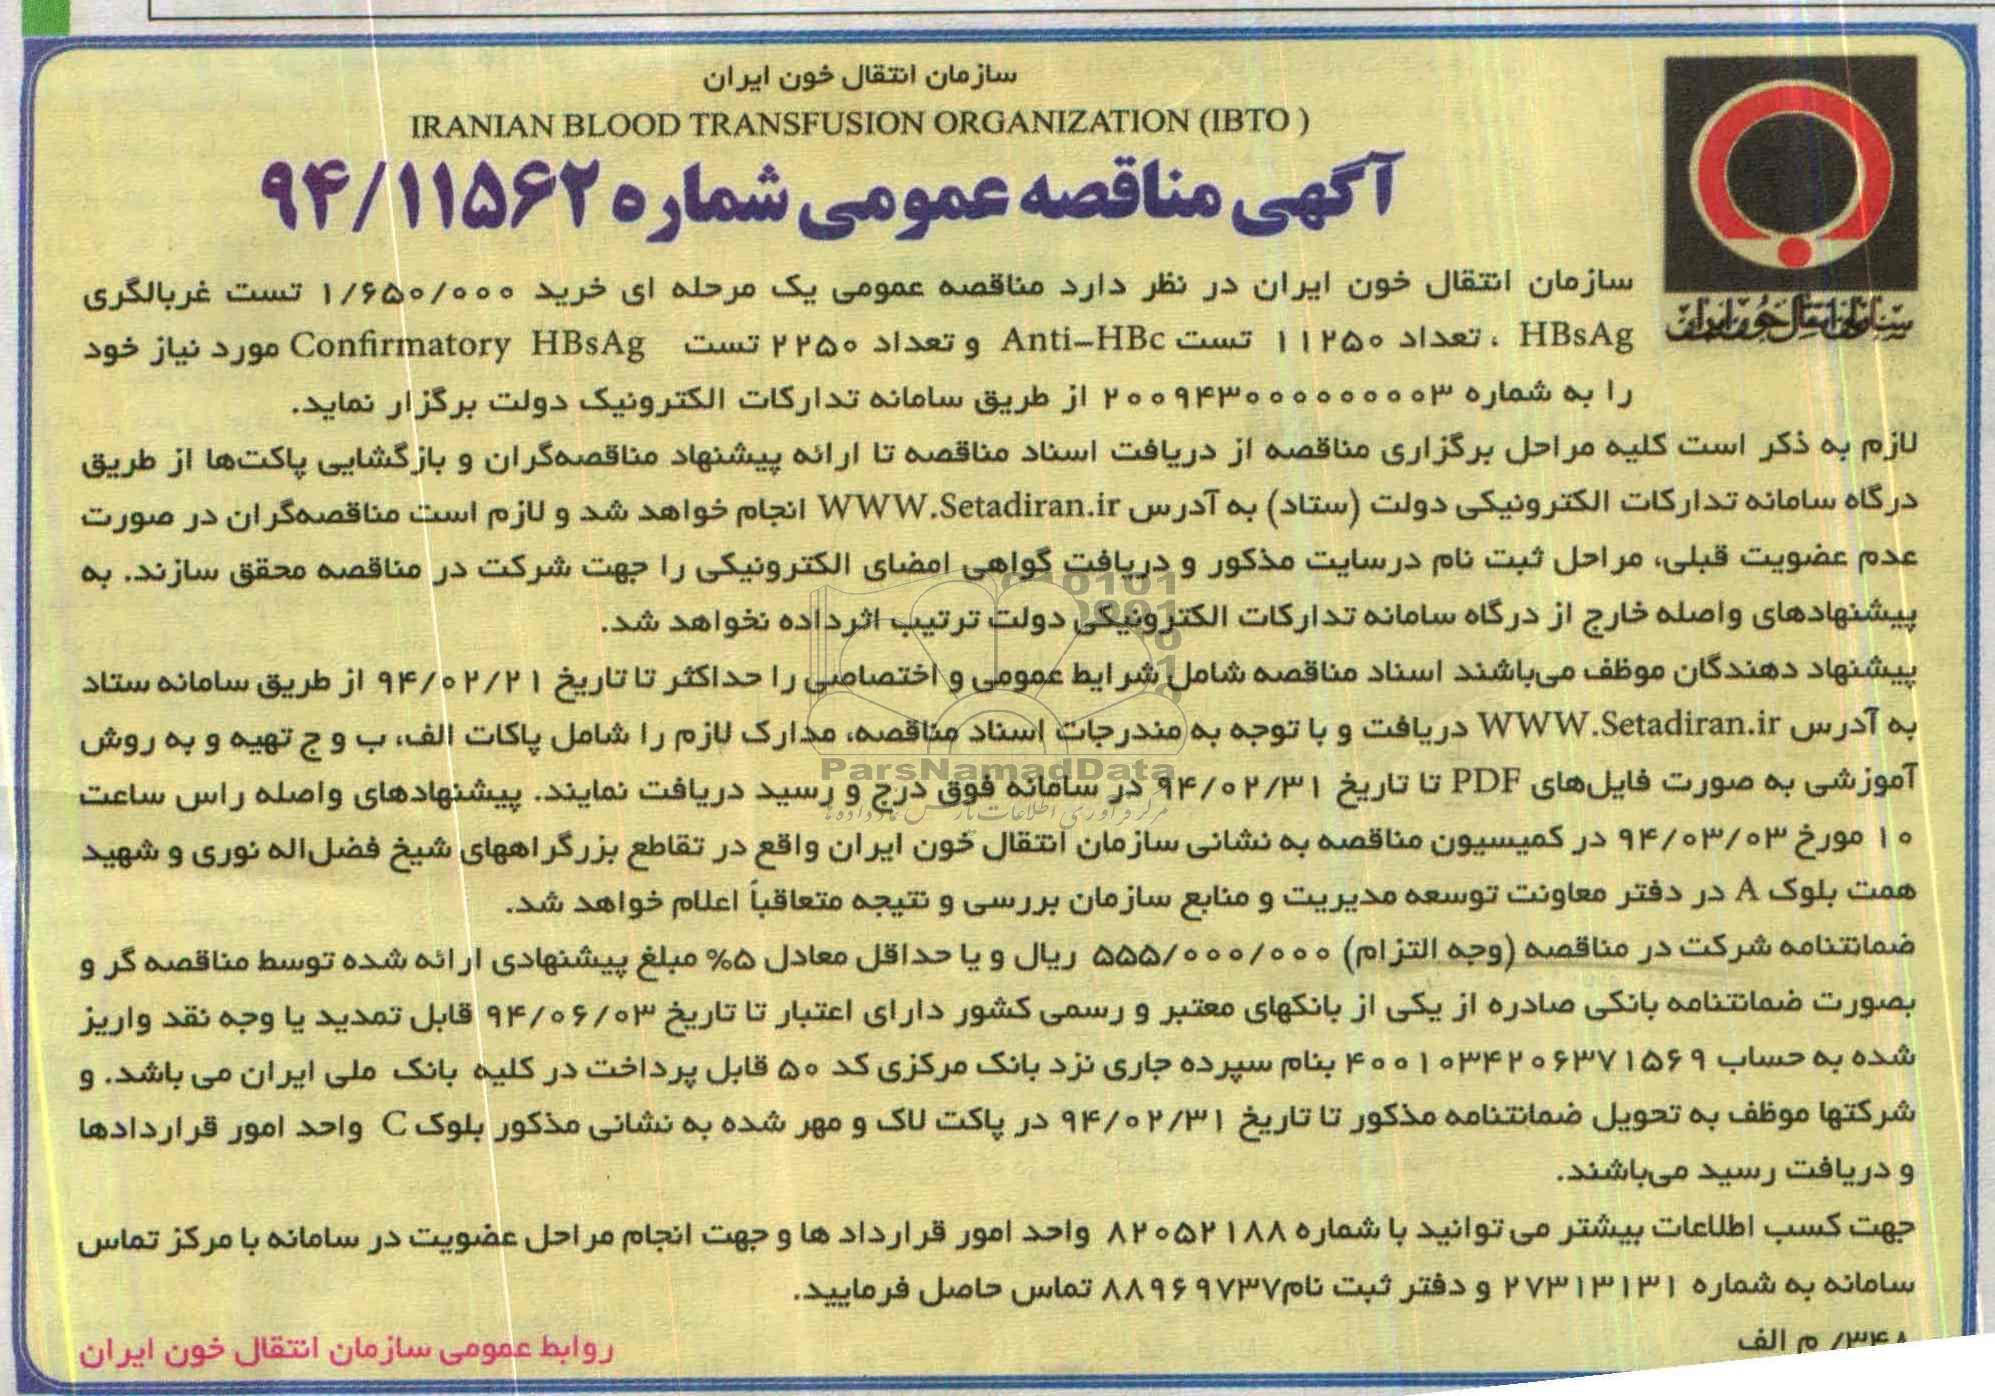 سازمان انتقال خون ایران
IRANIAN BLOOD TRANSFUSION ORGANIZATION (IBTO )
آگهی مناقصه عمومی شماره ۹۴/۱۱۵۶۲
سازمان انتقال خون ایران
سازمان انتقال خون ایران در نظر دارد مناقصه عمومی یک مرحله ای خرید ۱/۶۵۰/۰۰۰ تست غربالگری
HBsAg ، تعداد ۱۱۲۵۰ تست Anti-HBc و تعداد ۲۲۵۰ تست Confirmatory HBsAg مورد نیاز خود
را به شماره ۲۰۰۹۴۳۰۰۰۰۰۰۰۰۰۳ از طریق سامانه تدارکات الکترونیک دولت برگزار نماید.
لازم به ذکر است کلیه مراحل برگزاری مناقصه از دریافت اسناد مناقصه تا ارائه پیشنهاد مناقصه‌گران و بازگشایی پاکت‌ها از طریق
درگاه سامانه تدارکات الکترونیکی دولت (ستاد) به آدرس WWW.Setadiran.ir انجام خواهد شد و لازم است مناقصه‌گران در صورت
عدم عضویت قبلی، مراحل ثبت نام درسایت مذکور و دریافت گواهی امضای الکترونیکی را جهت شرکت در مناقصه محقق سازند. به
پیشنهادهای واصله خارج از درگاه سامانه تدارکات الکترونیکی دولت ترتیب اثرداده نخواهد شد.
پیشنهاد دهندگان موظف می‌باشند اسناد مناقصه شامل شرایط عمومی و اختصاصی را حداکثر تا تاریخ ۹۴/۰۲/۲۱ از طریق سامانه ستاد
به آدرس WWW.Setadiran.ir دریافت و با توجه به مندرجات اسناد مناقصه، مدارک لازم را شامل پاکات الف، ب و ج تهیه و به روش
آموزشی به صورت فایل‌های PDF تا تاریخ ۹۴/۰۲/۳۱ در سامانه فوق درج و رسید دریافت نمایند. پیشنهادهای واصله راس ساعت
۱۰ مورخ ۹۴/۰۳/۰۳ در کمیسیون مناقصه به نشانی سازمان انتقال خون ایران واقع در تقاطع بزرگراههای شیخ فضل‌اله نوری و شهید
همت بلوک A در دفتر معاونت توسعه مدیریت و منابع سازمان بررسی و نتیجه متعاقباً اعلام خواهد شد.
ضمانتنامه شرکت در مناقصه (وجه التزام) ۵۵۵/۰۰۰/۰۰۰ ریال و یا حداقل معادل ۵% مبلغ پیشنهادی ارائه شده توسط مناقصه گر و
بصورت ضمانتنامه بانکی صادره از یکی از بانکهای معتبر و رسمی کشور دارای اعتبار تا تاریخ ۹۴/۰۶/۰۳ قابل تمدید یا وجه نقد واریز
شده به حساب ۴۰۰۱۰۳۴۲۰۶۳۷۱۵۶۹ بنام سپرده جاری نزد بانک مرکزی کد ۵۰ قابل پرداخت در کلیه بانک ملی ایران می باشد. و
شرکتها موظف به تحویل ضمانتنامه مذکور تا تاریخ ۹۴/۰۲/۳۱ در پاکت لاک و مهر شده به نشانی مذکور بلوک C واحد امور قراردادها
و دریافت رسید می‌باشند.
جهت کسب اطلاعات بیشتر می توانید با شماره ۸۲۰۵۲۱۸۸ واحد امور قرارداد ها و جهت انجام مراحل عضویت در سامانه با مرکز تماس
سامانه به شماره ۲۷۳۱۳۱۳۱ و دفتر ثبت نام۸۸۹۶۹۷۳۷ تماس حاصل فرمایید.
۳۴۸/ م الف
روابط عمومی سازمان انتقال خون ایران
ParsNamadData